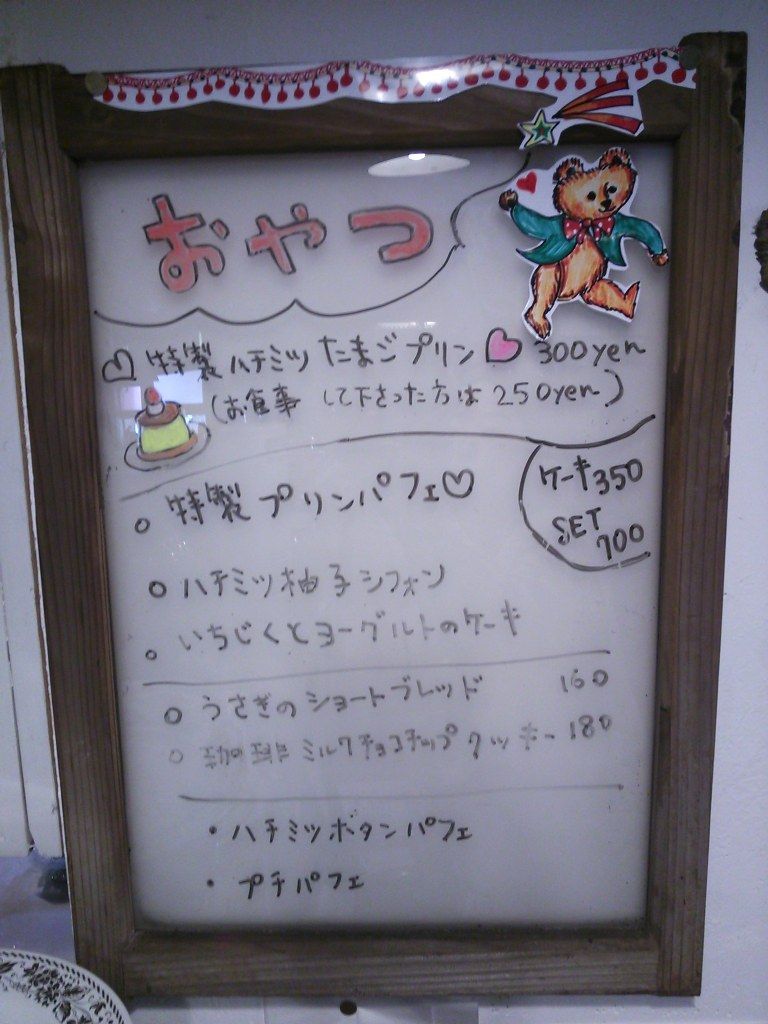 おやつ
♡ 特製ハチミツたまごプリン 300yen
(お食事して下さった方は250yen)
ケーキ350
SET
700
○ 特製プリンパフェ♡
○ ハチミツ柚子シフォン
○ いちじくとヨーグルトのケーキ
○ うさぎのショートブレッド 160
○ 珈琲ミルクチョコチップクッキー 180
・ハチミツボタンパフェ
・プチパフェ